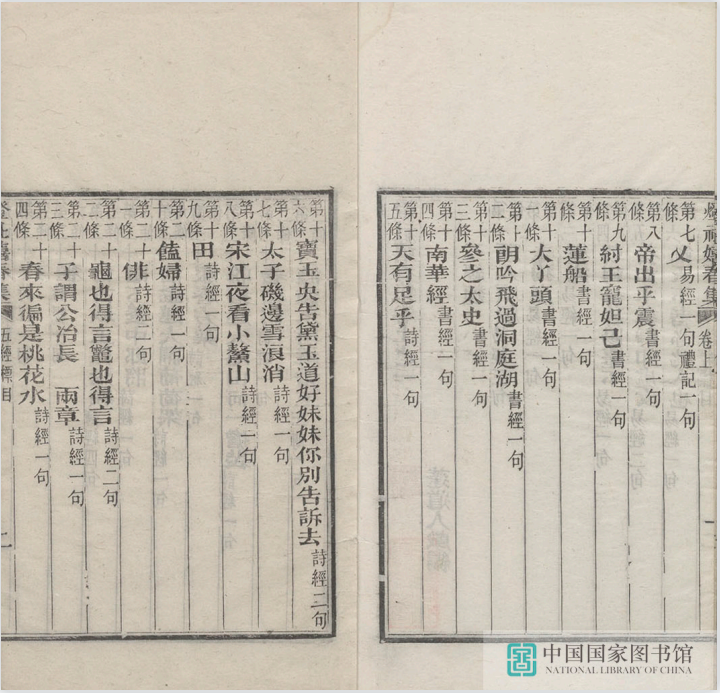 燈社嬉春集 卷上
第七條 易經一句禮記一句
第八條 帝出乎震 書經一句
第九條 紂王寵妲己 書經一句
第十條 蓮船 書經一句
第十一條 大丫頭 書經一句
第十二條 朗吟飛過洞庭湖 書經一句
第十三條 參之太史 書經一句
第十四條 南華經 書經一句
第十五條 天有足乎 詩經一句
第十六條 寶玉央告黛玉道好妹妹你別告訴去 詩經二句
第十七條 太子磯邊雪浪消 詩經一句
第十八條 宋江夜看小鰲山 詩經一句
第十九條 田 詩經一句
第二十條 饁婦 詩經一句
第二十一條 俳 詩經二句
第二十二條 龜也得言鼈也得言 詩經二句
第二十三條 子謂公冶長 兩章 詩經一句
第二十四條 春來徧是桃花水 詩經一句
燈社嬉春集 五經標目
中国国家图书馆
NATIONAL LIBRARY OF CHINA